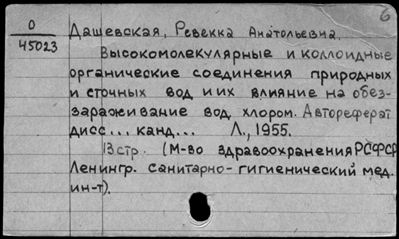 6
О
45023
Дашевская, Ревекка Анатольевна.
Высокомолекулярные и коллоидные
органические соединения природных
и сточных вод и их влияние на обез-
зараживание вод хлором. Автореферат
дисс... канд... Л., 1955.
13 стр. (М-во здравоохранения РСФСР
Ленингр. санитарно-гигиенический мед.
ин-т).